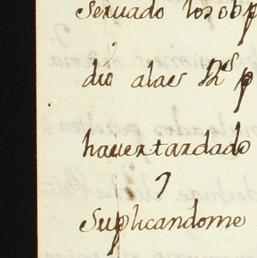 seruado los ob
dio alas
hauertardado
Suplicandome